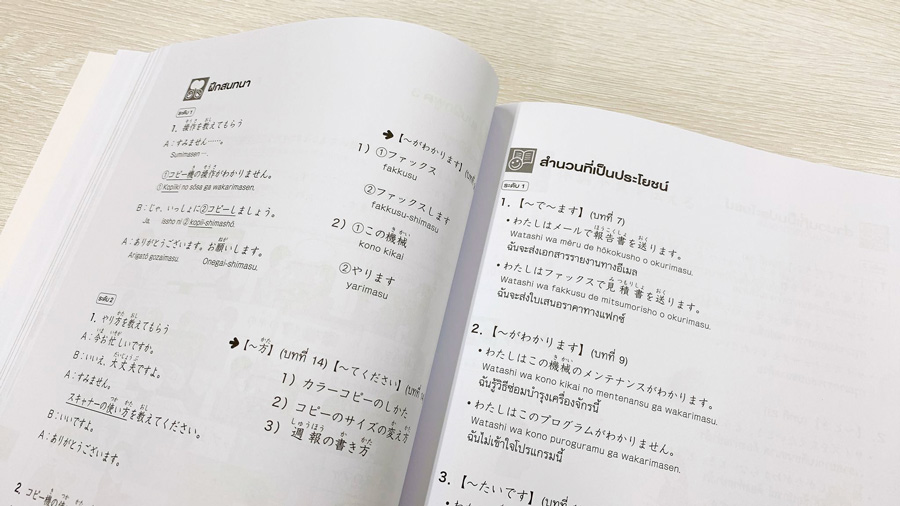 ฝึกสนทนา
ระดับ 1
1. 操作を教えてもらう
A：すみません……。
Sumimasen….
①コピー機の操作がわかりません。
① Kopiiki no sōsa ga wakarimasen.
B：じゃ、いっしょに②コピーしましょう。
Ja, issho ni ② kopii-shimashō.
A：ありがとうございます。お願いします。
Arigatō gozaimasu. Onegai-shimasu.
➔【～がわかります】(บทที่
1) ①ファックス
fakkusu
②ファックスします
fakkusu-shimasu
2) ①この機械
kono kikai
②やります
yarimasu
ระดับ 2
1. やり方を教えてもらう
A：今お忙しいですか。
B：いいえ、大丈夫ですよ。
A：すみません。
スキャナーの使い方を教えてください。
B：いいですよ。
A：ありがとうございます。
➔【～方】(บทที่ 14)【～てください】(บทที่
1) カラーコピーのしかた
2) コピーのサイズの変え方
3) 週報の書き方
2. コピー機の使
สำนวนที่เป็นประโยชน์
ระดับ 1
1.【～で～ます】(บทที่ 7)
• わたしはメールで報告書を送ります。
Watashi wa mēru de hōkokusho o okurimasu.
ฉันจะส่งเอกสารรายงานทางอีเมล
• わたしはファックスで見積書を送ります。
Watashi wa fakkusu de mitsumorisho o okurimasu.
ฉันจะส่งใบเสนอราคาทางแฟกซ์
2.【～がわかります】(บทที่ 9)
• わたしはこの機械のメンテナンスがわかります。
Watashi wa kono kikai no mentenansu ga wakarimasu.
ฉันรู้วิธีซ่อมบำรุงเครื่องจักรนี้
• わたしはこのプログラムがわかりません。
Watashi wa kono puroguramu ga wakarimasen.
ฉันไม่เข้าใจโปรแกรมนี้
3.【～たいです】(บทที่